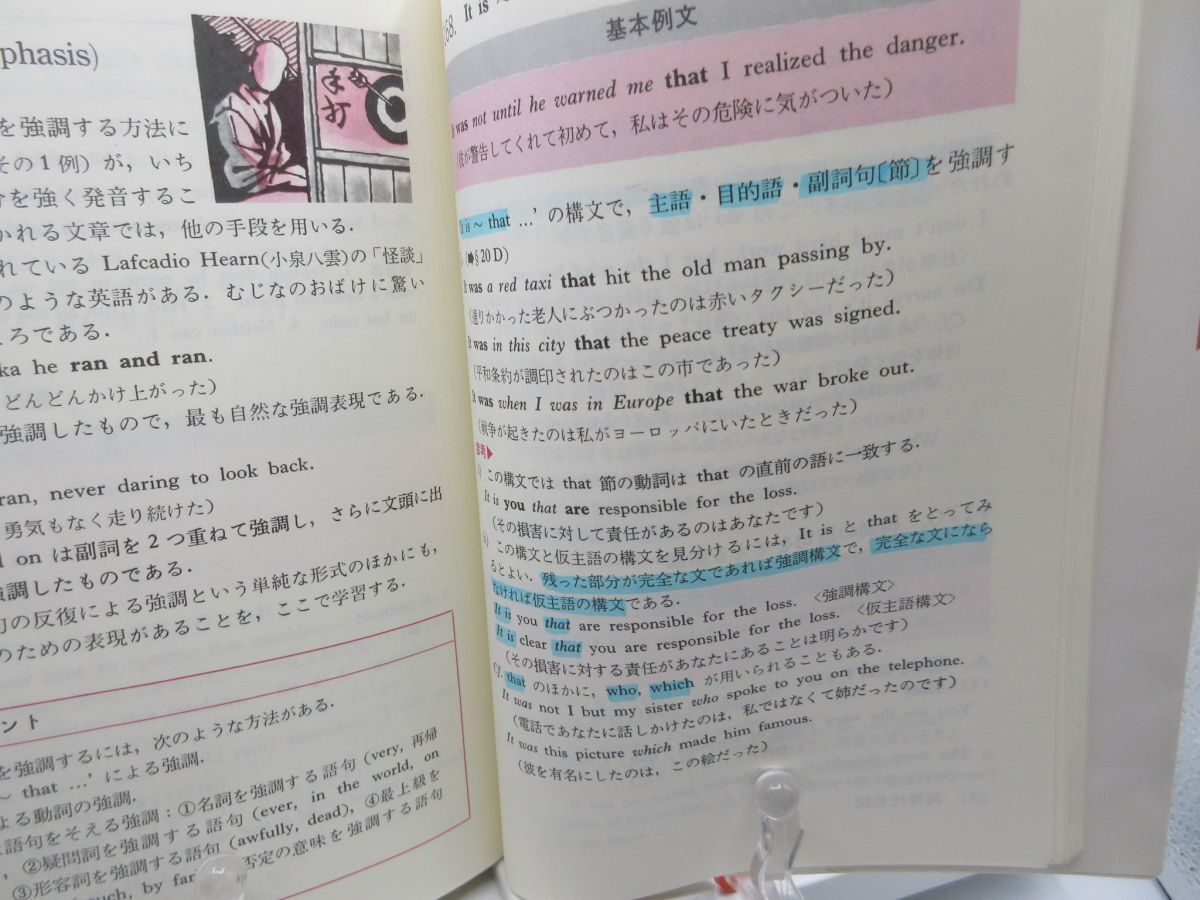 phasis)
手打
を強調する方法に
その1例)が，いち
を強く発音するこ
かれる文章では，他の手段を用いる．
れている Lafcadio Hearn(小泉八雲)の「怪談」
のような英語がある．むじなのおばけに驚い
ころである．
ka he ran and ran.
どんどんかけ上がった)
強調したもので，最も自然な強調表現である．
ran, never daring to look back.
勇気もなく走り続けた)
on は副詞を2つ重ねて強調し，さらに文頭に出
強調したものである．
の反復による強調という単純な形式のほかにも，
のための表現があることを，ここで学習する．
ント
を強調するには，次のような方法がある．
～ that …’ による強調．
よる動詞の強調．
語句をそえる強調：①名詞を強調する語句 (very, 再帰
，②疑問詞を強調する語句 (ever, in the world, on
③形容詞を強調する語句 (awfully, dead)，④最上級を
much, by far 否定の意味を強調する語句
68. It is ～
基本例文
It was not until he warned me that I realized the danger.
(彼が警告してくれて初めて，私はその危険に気がついた)
It is ～ that …’ の構文で，主語・目的語・副詞句〔節〕を強調す
(➡§20D)
It was a red taxi that hit the old man passing by.
(通りかかった老人にぶつかったのは赤いタクシーだった)
It was in this city that the peace treaty was signed.
(平和条約が調印されたのはこの市であった)
It was when I was in Europe that the war broke out.
(戦争が起きたのは私がヨーロッパにいたときだった)
参考▶
i) この構文では that 節の動詞は that の直前の語に一致する．
It is you that are responsible for the loss.
(その損害に対して責任があるのはあなたです)
ii) この構文と仮主語の構文を見分けるには，It is と that をとってみ
るとよい．残った部分が完全な文であれば強調構文で，完全な文になら
なければ仮主語の構文である．
It is you that are responsible for the loss. 〈強調構文〉
It is clear that you are responsible for the loss. 〈仮主語構文〉
(その損害に対する責任があなたにあることは明らかです)
Cf. that のほかに，who, which が用いられることもある．
It was not I but my sister who spoke to you on the telephone.
(電話であなたに話しかけたのは，私ではなくて姉だったのです)
It was this picture which made him famous.
(彼を有名にしたのは，この絵だった)